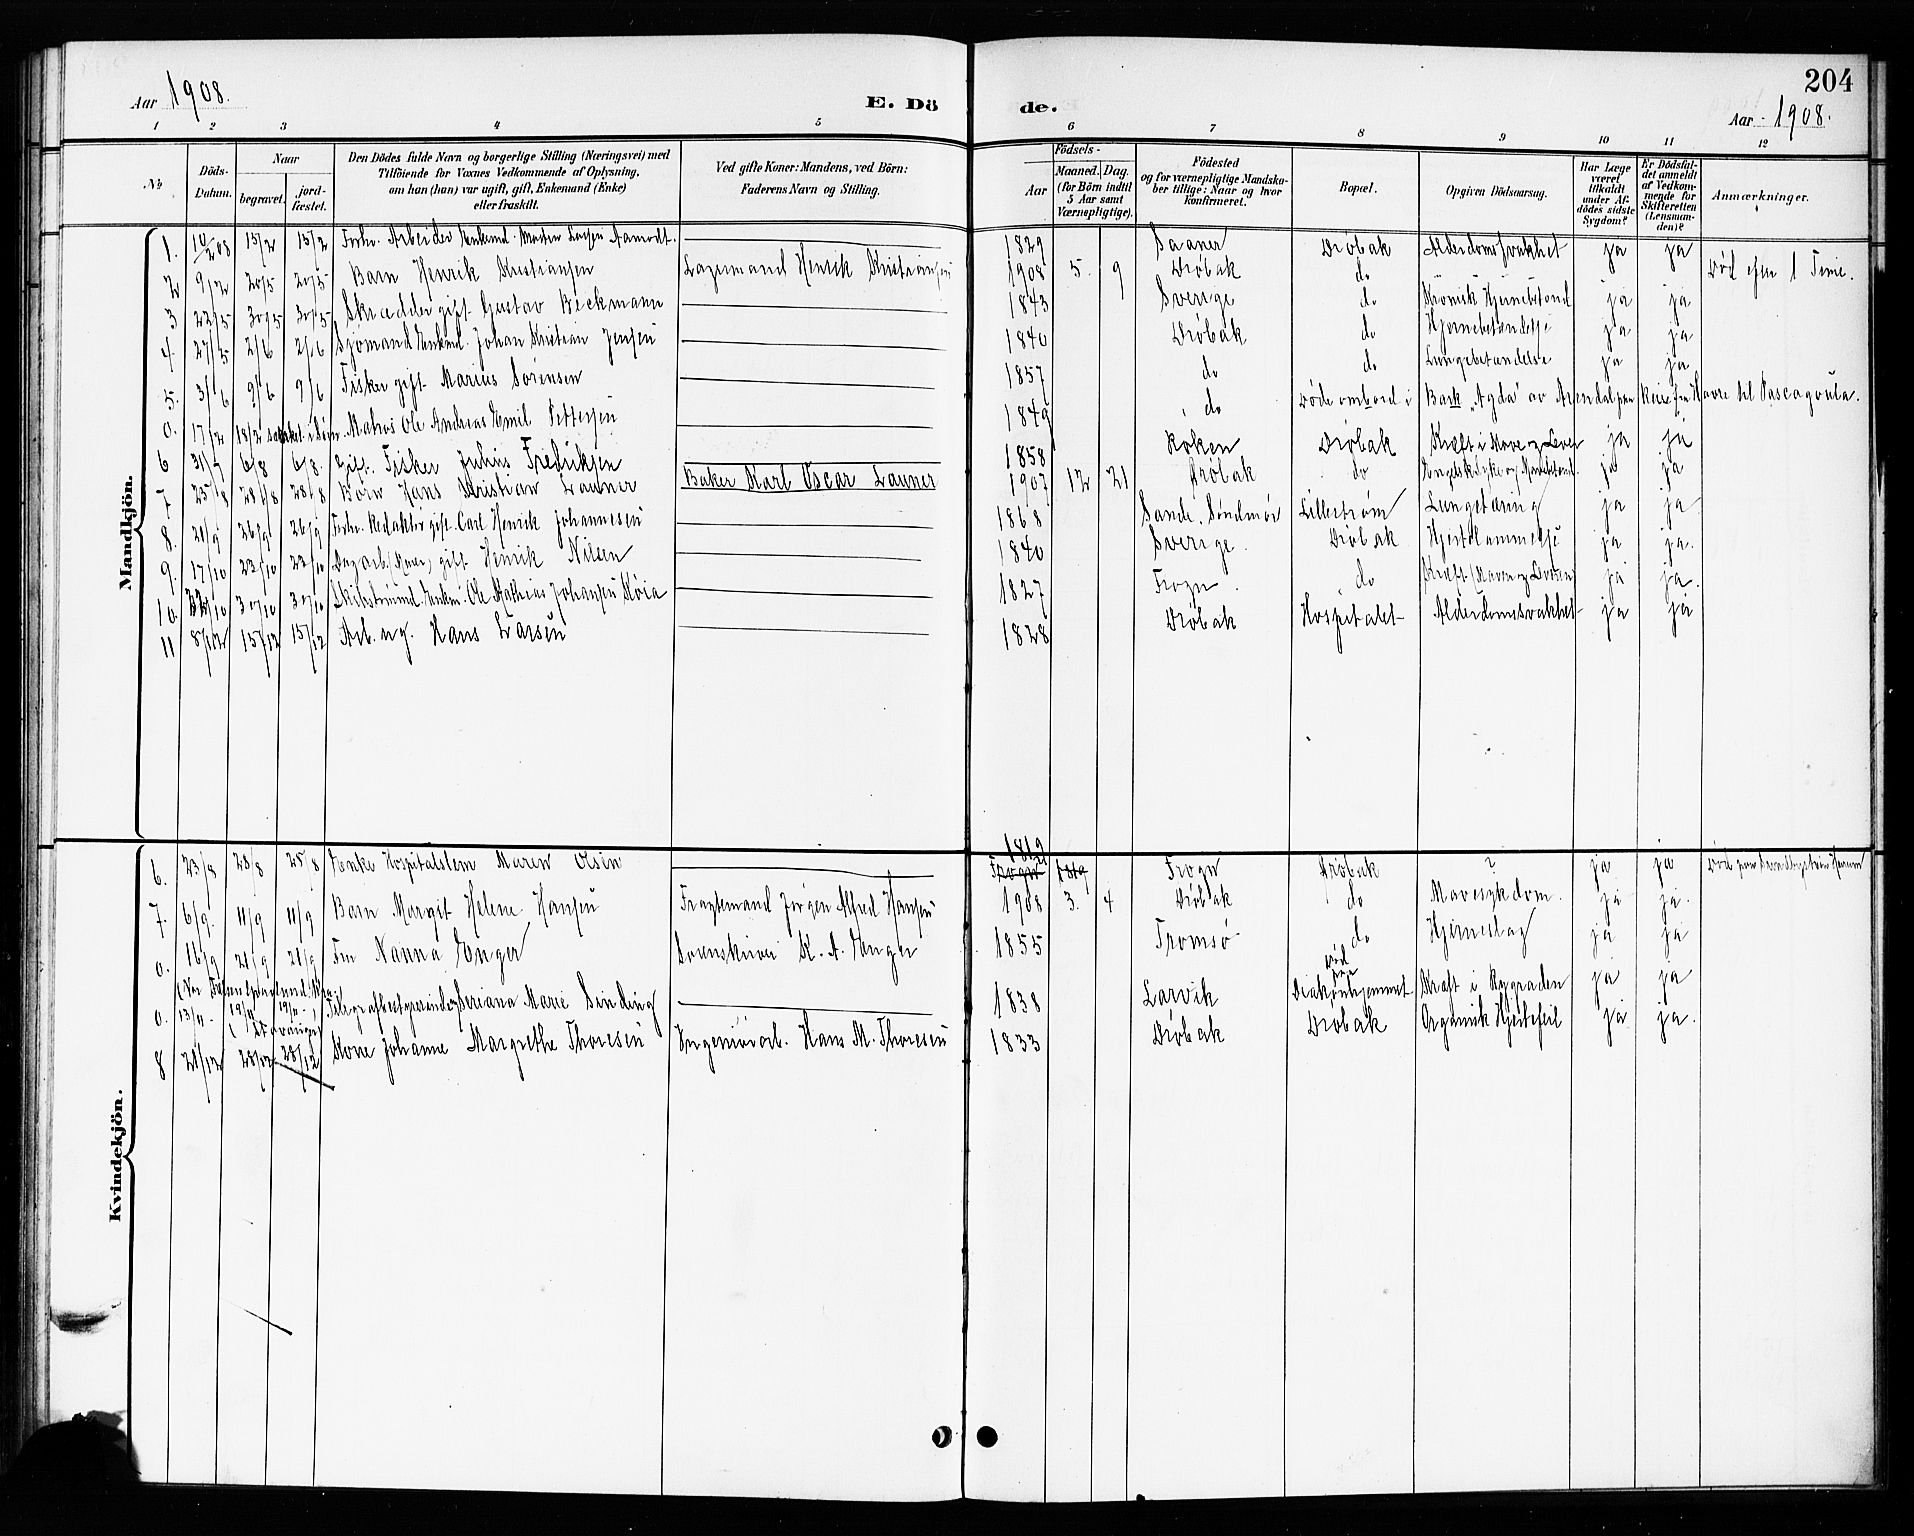 204
Aar 1908. E. Dö de. Aar 1908.
1 2 3 4 5 6 7 8 9 10 11 12
No. Döds-Datum. Naar begravet. jord-fæstet. Den Dödes fulde Navn og borgerlige Stilling (Næringsvei) med Tilföiende for Voxnes Vedkommende af Oplysning, om han (hun) var ugift, gift, Enkemand (Enke) eller fraskilt. Ved gifte Koner: Mandens, ved Börn: Faderens Navn og Stilling. Födsels- Aar Maaned. Dag. (for Börn indtil 5 Aar samt Værnepligtige). Födested og for værnepligtige Mandskaber tillige: Naar og hvor konfirmeret. Bopæl. Opgiven Dödsaarsag. Har Læge været tilkaldt under Afdödes sidste Sygdom? Er Dödsfaldet anmeldt af Vedkommende for Skifteretten (Lensmanden)? Anmærkninger.
Mandkjön.
1. 10/2 08 15/2 15/2 Forhv. Arbeider Enkemd. Morten Larsen Aamodt. 1829 Saaner Dröbak Alderdomssvakhet ja ja
2 9/2 20/5 20/5 Barn Henrik Kristiansen Lagemand Henrik Kristiansen 1908 5. 9 Dröbak do Död efter 1 Time.
3 22/5 30/5 30/5 Skrædder gift Gustav Beckmann 1843 Sverige do Kronisk Hjernebetænd ja ja
4. 27/5 2/6 2/6 Sjömand Enkmd. Johan Kristian Jensen 1840 Dröbak do Hjernebetændelse ja ja
5. 3/6 9/6 9/6 Fisker gift Marius Sörensen 1857 do do Lungebetændelse ja ja
0. 17/2 18/2 sænket i Sjöen Matros Ole Andreas Emil Pettersen 1849 do Döde ombord i Bark "Agda" av Arendal paa Reise fra Havre til Pascagoula.
6 31/7 6/8 6/8. Gift. Fisker Julius Fredriksen 1858 Röken Dröbak Kræft i Mave og Lever ja ja
7 25/8 28/8 28/8 Barn Hans Kristian Launer Baker Karl Oscar Launer 1907 12 21 Dröbak do Engelsk Syke og ja ja
8. 21/9 26/9 26/9 Forhv. Redaktör gift. Carl Henrik Johannesen 1868 Sande. Söndmör Lilleström Lungetæring ja ja
9. 17/10 22/10 22/10 Dagarb. gift. Henrik Nilsen 1840 Sverige. Dröbak Hjertelammelse ja ja.
10. /10 30/10 30/10 Skibstömmd. Enkm. Ole Mathias Johansen Röia 1827 Frogn. do Kræft (Maven og Leveren) ja ja.
11 8/12 15/12 15/12 Arb. ug. Hans Larsen 1828 Dröbak Hospitalet Alderdomssvakhet ja ja
Kvindekjön.
6. 23/8 28/8 25/8 Enke Hospitalslem Maren Olsen 1819 Frogn Dröbak ? ja ja
7. 6/9. 11/9 11/9 Barn Margit Helene Hansen Fragtemand Jörgen Alfred Hansen 1908 3. 4 Dröbak do Mavesykdom. ja ja.
0. 16/9 21/9 21/9 Fru Nanna Enger Sorenskriver K. A. Enger 1855 Tromsö do Hjerneslag ja ja
0. 13/11 19/11 19/11 (Stavanger) Telegrafbestyrerinde Seriana Marie Sinding 1838 Larvik Död paa Diakonhjemmet Kræft i Rygraden ja ja
8 21/12 28/12 28/12 Kone Johanne Margrethe Thoresen Ingeniörarb. Hans M. Thoresen 1833 Dröbak Dröbak Organisk Hjertefeil ja ja.